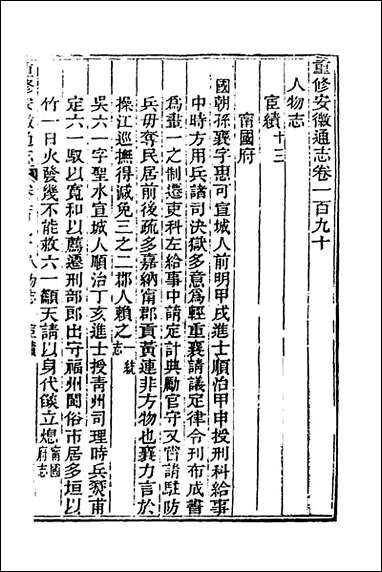 重修安徽通志卷一百九十
人物志
宦績十三
甯國府
國朝孫襄字惠可宣城人前明甲戌進士順治甲申授刑科給事
中時方用兵諸司決獄多意為輕重襄請議定律令刊布成書
為畫一之制遷吏科左給事中請定計典勵官守又嘗請駐防
兵毋奪民居前後疏多嘉納南郡貢黃連非方物也襄力言於
操江巡撫得減免三之二郡人賴之一統志
吳六一字聖水宣城人順治丁亥進士授青州司理時兵燹甫
定六一馭以寬和以薦遷刑部郎出守福州閩俗市居多垣以
竹一日火發幾不能救六一籲天請以身代燄立熄甯國府志
重修安徽通志